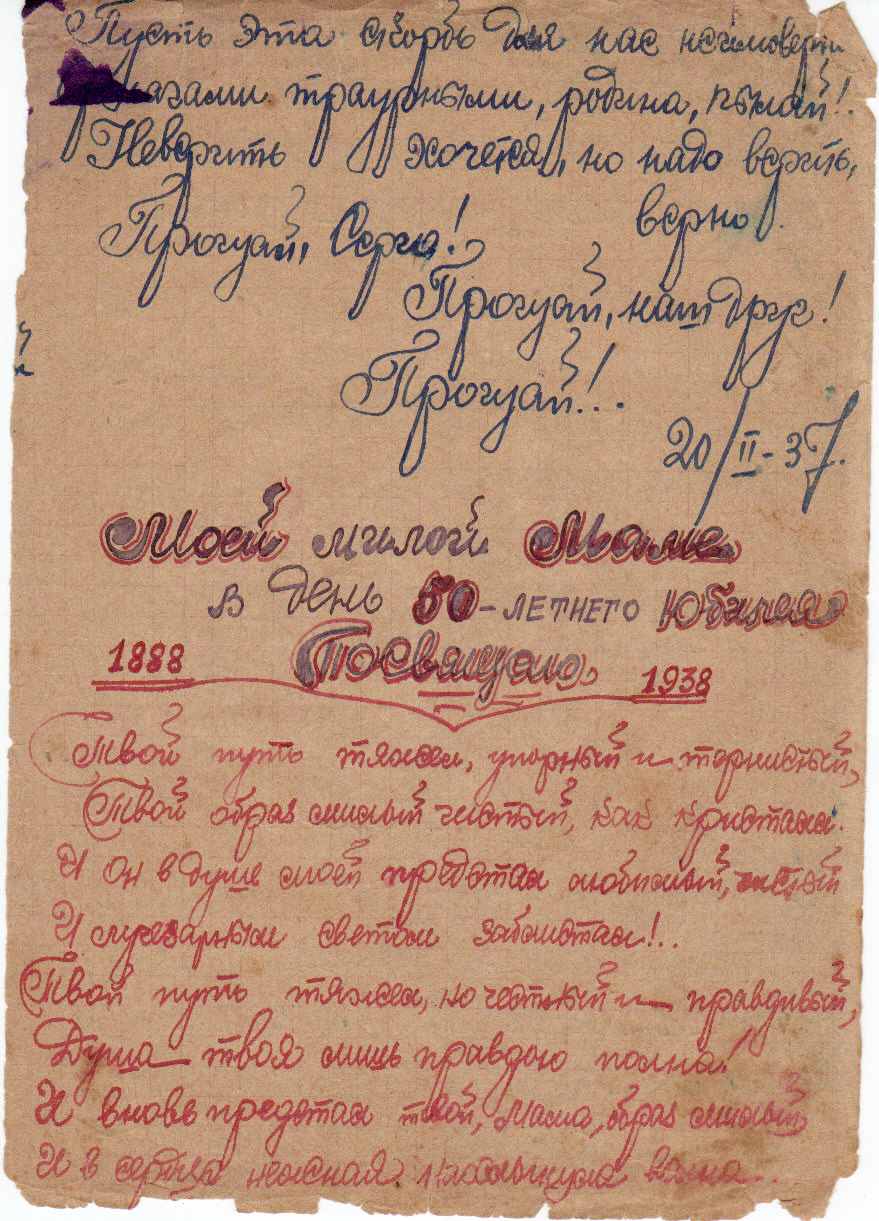 Пусть эта скорбь для нас неимоверн
лагами траурными, родина, пылай!.
Неверить хочется, но надо верить,
верно.
Прощай, Серго!
Прощай, наш друг!
Прощай!..
20/II-37.
Моей милой Маме
в день 50-летнего Юбилея
Посвящаю
1888 1938
Твой путь тяжел, упорный и тернистый,
Твой образ милый чистый, как кристалл.
И он в душе моей предстал любимый,
И лучезарным светом заблистал!..
Твой путь тяжел, но честный и правдивый,
Душа твоя лишь правдою полна!
И вновь предстал твой, Мама, образ милый
И в сердце нежная нахлынула волна..